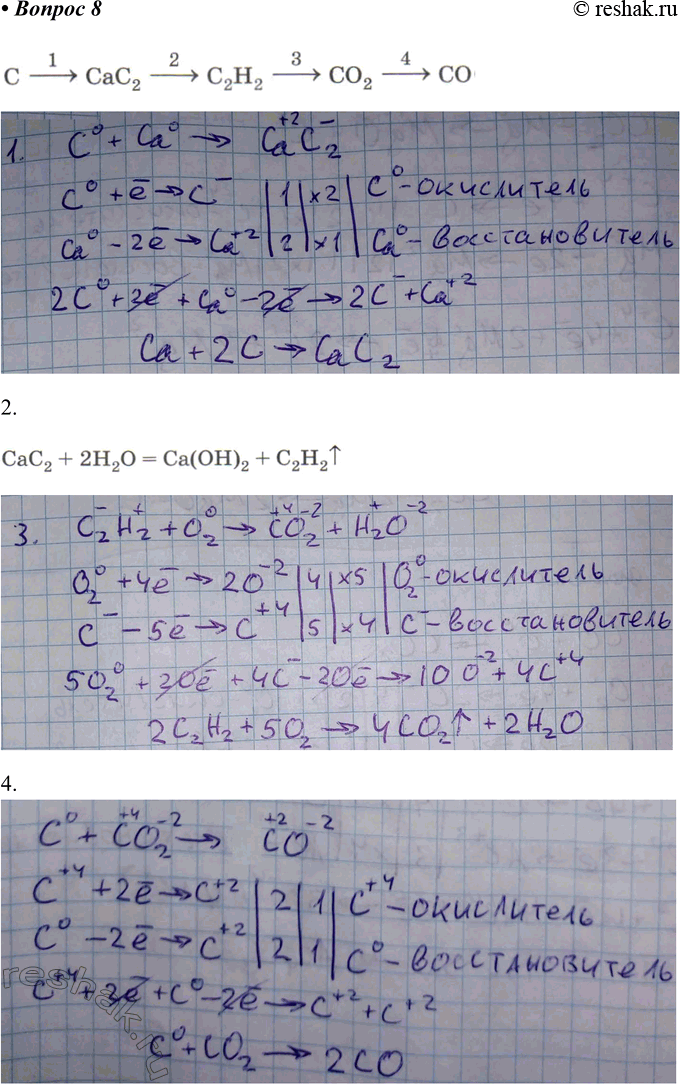 • Вопрос 8
© reshak.ru
C —1→ CaC₂ —2→ C₂H₂ —3→ CO₂ —4→ CO
1. C⁰ + Ca⁰ → Ca⁺²C₂⁻
C⁰ + ē → C⁻ | 1 | ×2 | C⁰ - окислитель
Ca⁰ - 2ē → Ca⁺² | 2 | ×1 | Ca⁰ - восстановитель
2C⁰ + 2ē + Ca⁰ - 2ē → 2C⁻ + Ca⁺²
Ca + 2C → CaC₂
2.
CaC₂ + 2H₂O = Ca(OH)₂ + C₂H₂↑
3. C₂⁻H₂⁺ + O₂⁰ → C⁺⁴O₂⁻² + H₂⁺O⁻²
O₂⁰ + 4ē → 2O⁻² | 4 | ×5 | O₂⁰ - окислитель
C⁻ - 5ē → C⁺⁴ | 5 | ×4 | C⁻ - восстановитель
5O₂⁰ + 20ē + 4C⁻ - 20ē → 10O⁻² + 4C⁺⁴
2C₂H₂ + 5O₂ → 4CO₂↑ + 2H₂O
4.
C⁰ + C⁺⁴O₂⁻² → C⁺²O⁻²
C⁺⁴ + 2ē → C⁺² | 2 | 1 | C⁺⁴ - окислитель
C⁰ - 2ē → C⁺² | 2 | 1 | C⁰ - восстановитель
C⁺⁴ + 2ē + C⁰ - 2ē → C⁺² + C⁺²
C⁰ + CO₂ → 2CO
reshak.ru